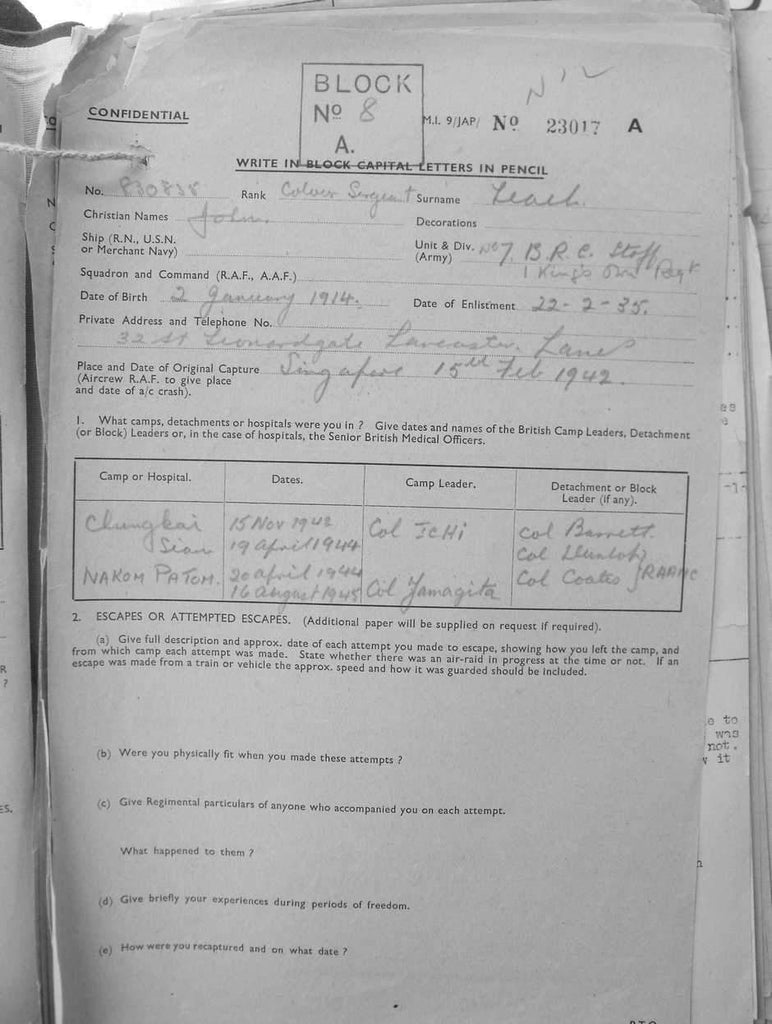 NIL
BLOCK
Nº 8
A.
CONFIDENTIAL
M.I. 9/JAP/ Nº 23017 A
WRITE IN BLOCK CAPITAL LETTERS IN PENCIL
No. 830838 Rank Colour Sergeant Surname Leach.
Christian Names John.
Decorations
Ship (R.N., U.S.N. or Merchant Navy)
Unit & Div. (Army) No 7. B.R.E. Staff
1 King's Own Regt
Squadron and Command (R.A.F., A.A.F.)
Date of Birth 2 January 1914. Date of Enlistment 22-2-35.
Private Address and Telephone No.
32 St Leonardgate Lancaster. Lancs
Place and Date of Original Capture Singapore 15th Feb 1942.
(Aircrew R.A.F. to give place
and date of a/c crash).
1. What camps, detachments or hospitals were you in ? Give dates and names of the British Camp Leaders, Detachment
(or Block) Leaders or, in the case of hospitals, the Senior British Medical Officers.
Camp or Hospital. Dates. Camp Leader. Detachment or Block
Leader (if any).
Chungkai 15 Nov 1942 Col IcHi Col Barrett.
Siam 19 April 1944 Col Dunlop
NAKOM PATOM. 20 April 1944 Col Coates } RAAMC
16 August 1945 Col Yamagita
2. ESCAPES OR ATTEMPTED ESCAPES. (Additional paper will be supplied on request if required).
(a) Give full description and approx. date of each attempt you made to escape, showing how you left the camp, and
from which camp each attempt was made. State whether there was an air-raid in progress at the time or not. If an
escape was made from a train or vehicle the approx. speed and how it was guarded should be included.
(b) Were you physically fit when you made these attempts ?
(c) Give Regimental particulars of anyone who accompanied you on each attempt.
What happened to them ?
(d) Give briefly your experiences during periods of freedom.
(e) How were you recaptured and on what date ?